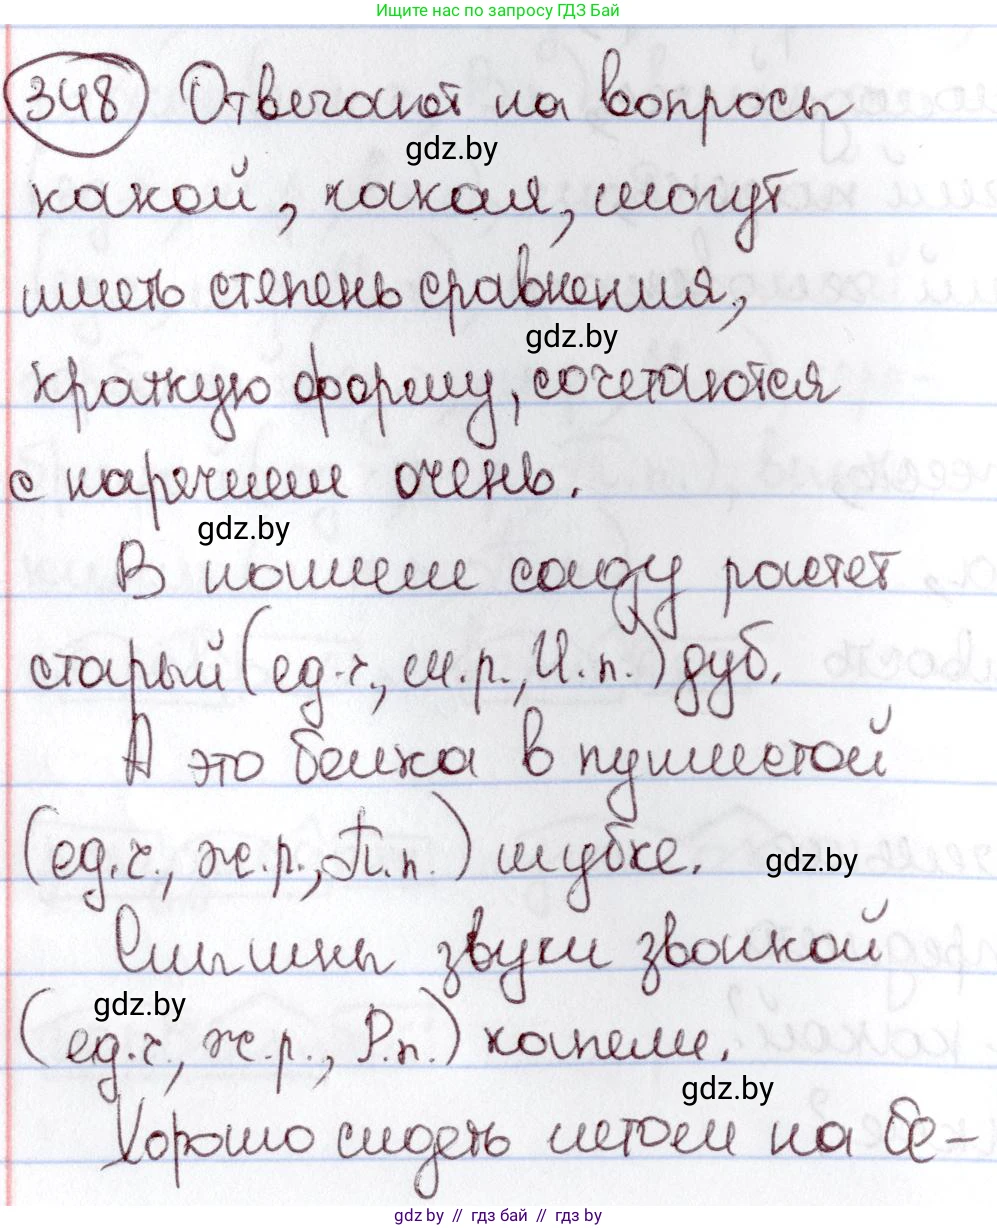 Ищите нас по запросу ГДЗ Бай
348 Отвечают на вопросы
gdz.by
какой, какая, могут
иметь степень сравнения,
gdz.by
краткую форму, сочетаются
с наречием очень.
gdz.by
В нашем саду растет
старый (ед.ч., м.р., И.п.) дуб.
А это белка в пушистой
(ед.ч., ж.р., П.п.) шубке.
gdz.by
Слышны звуки звонкой
gdz.by
(ед.ч., ж.р., Р.п.) капели.
gdz.by
Хорошо сидеть летом на бе-
gdz.by // гдз бай // гдз by